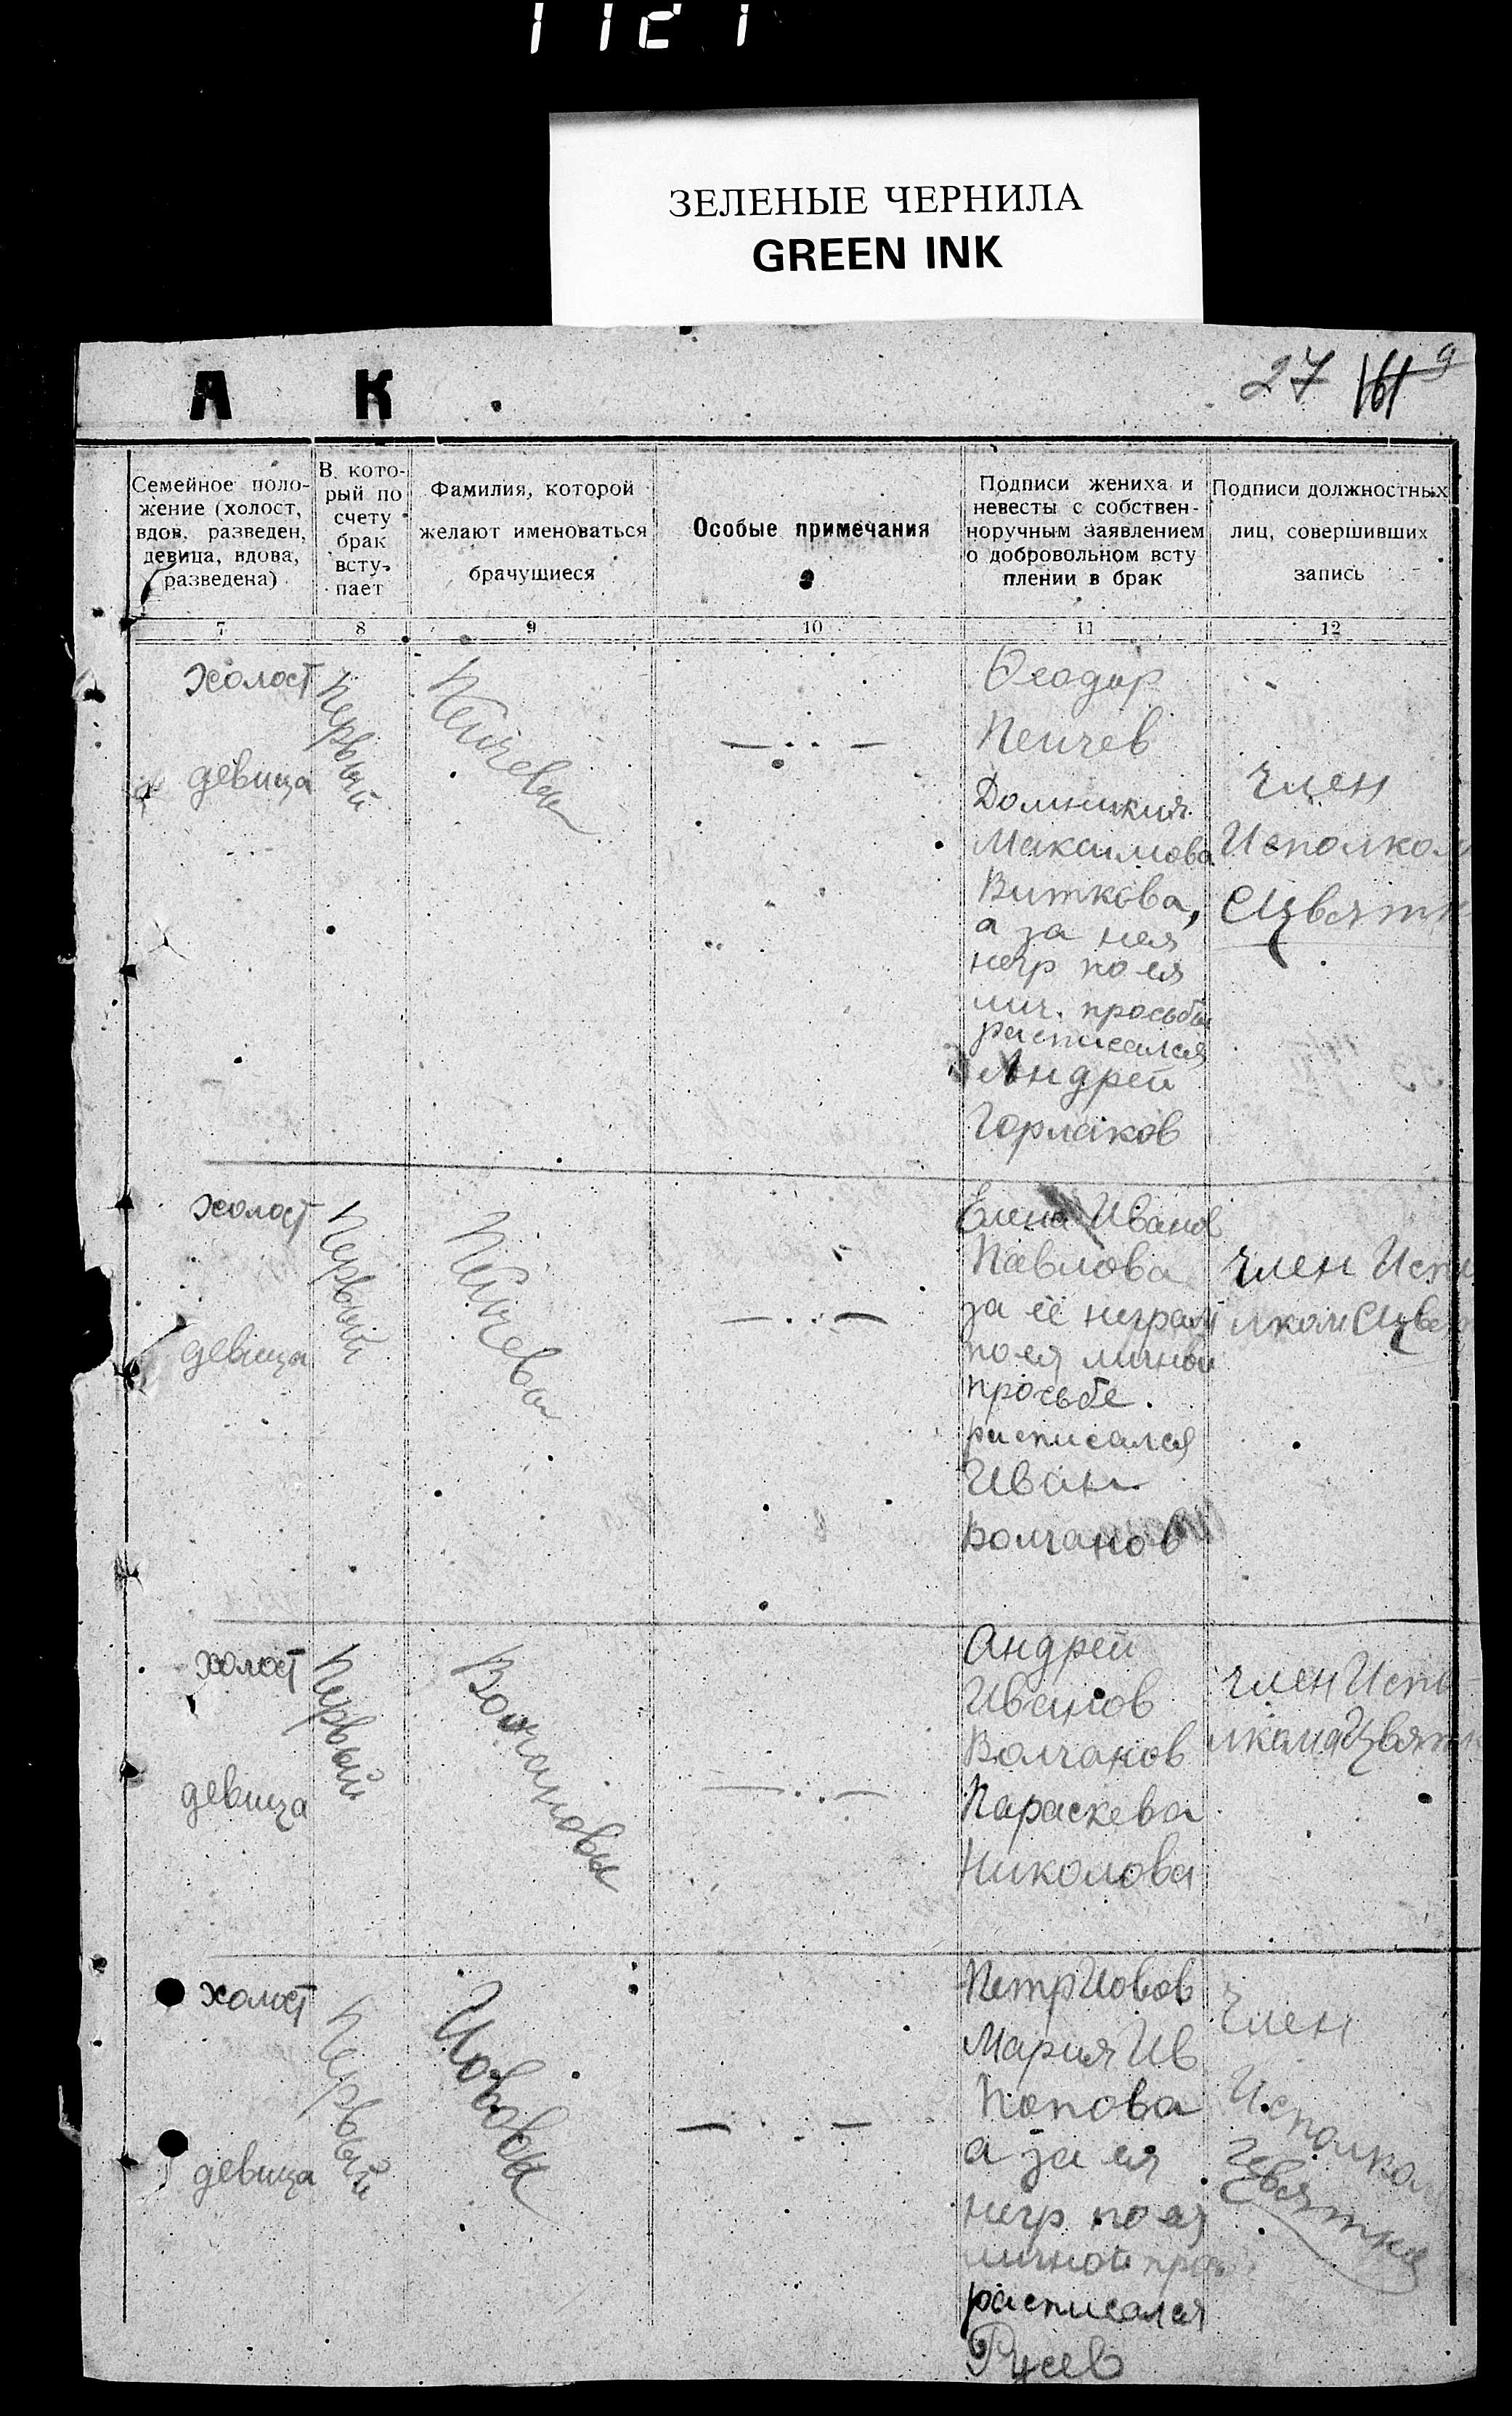 ЗЕЛЕНЫЕ ЧЕРНИЛА
GREEN INK
А К
27 161 9
Семейное поло-
жение (холост,
вдов, разведен,
девица, вдова,
разведена)
В кото-
рый по
счету
брак
всту-
пает
Фамилия, которой
желают именоваться
брачущиеся
Особые примечания
Подписи жениха и
невесты с собствен-
норучным заявлением
о добровольном всту
плении в брак
Подписи должностных
лиц, совершивших
запись
7 8 9 10 11 12
холост
девица
Первый
Пейчевы
— . . —
Феодор
Пейчев
Домникия
Максимова
Виткова,
а за нея
негр по ея
лич. просьбы
расписался
Андрей
Горлаков
Член
Исполком
холост
девица
Первый
Пейчевы
— . . —
Елена Иванов
Павлова
за её неграм
по ея личной
просьбе.
расписался
Иван
Волчанов
Член Испо
лком
холост
девица
Первый
Волчановы
— . . —
Андрей
Иванов
Волчанов
Параскева
Николова
Член Испо-
лкома
холост
девица
Первый
Иововы
— . . —
Петр Иовов
Мария Ив
Попова
а за ея
негр по ея
личной прось
расписался
Русев
Член
Исполком